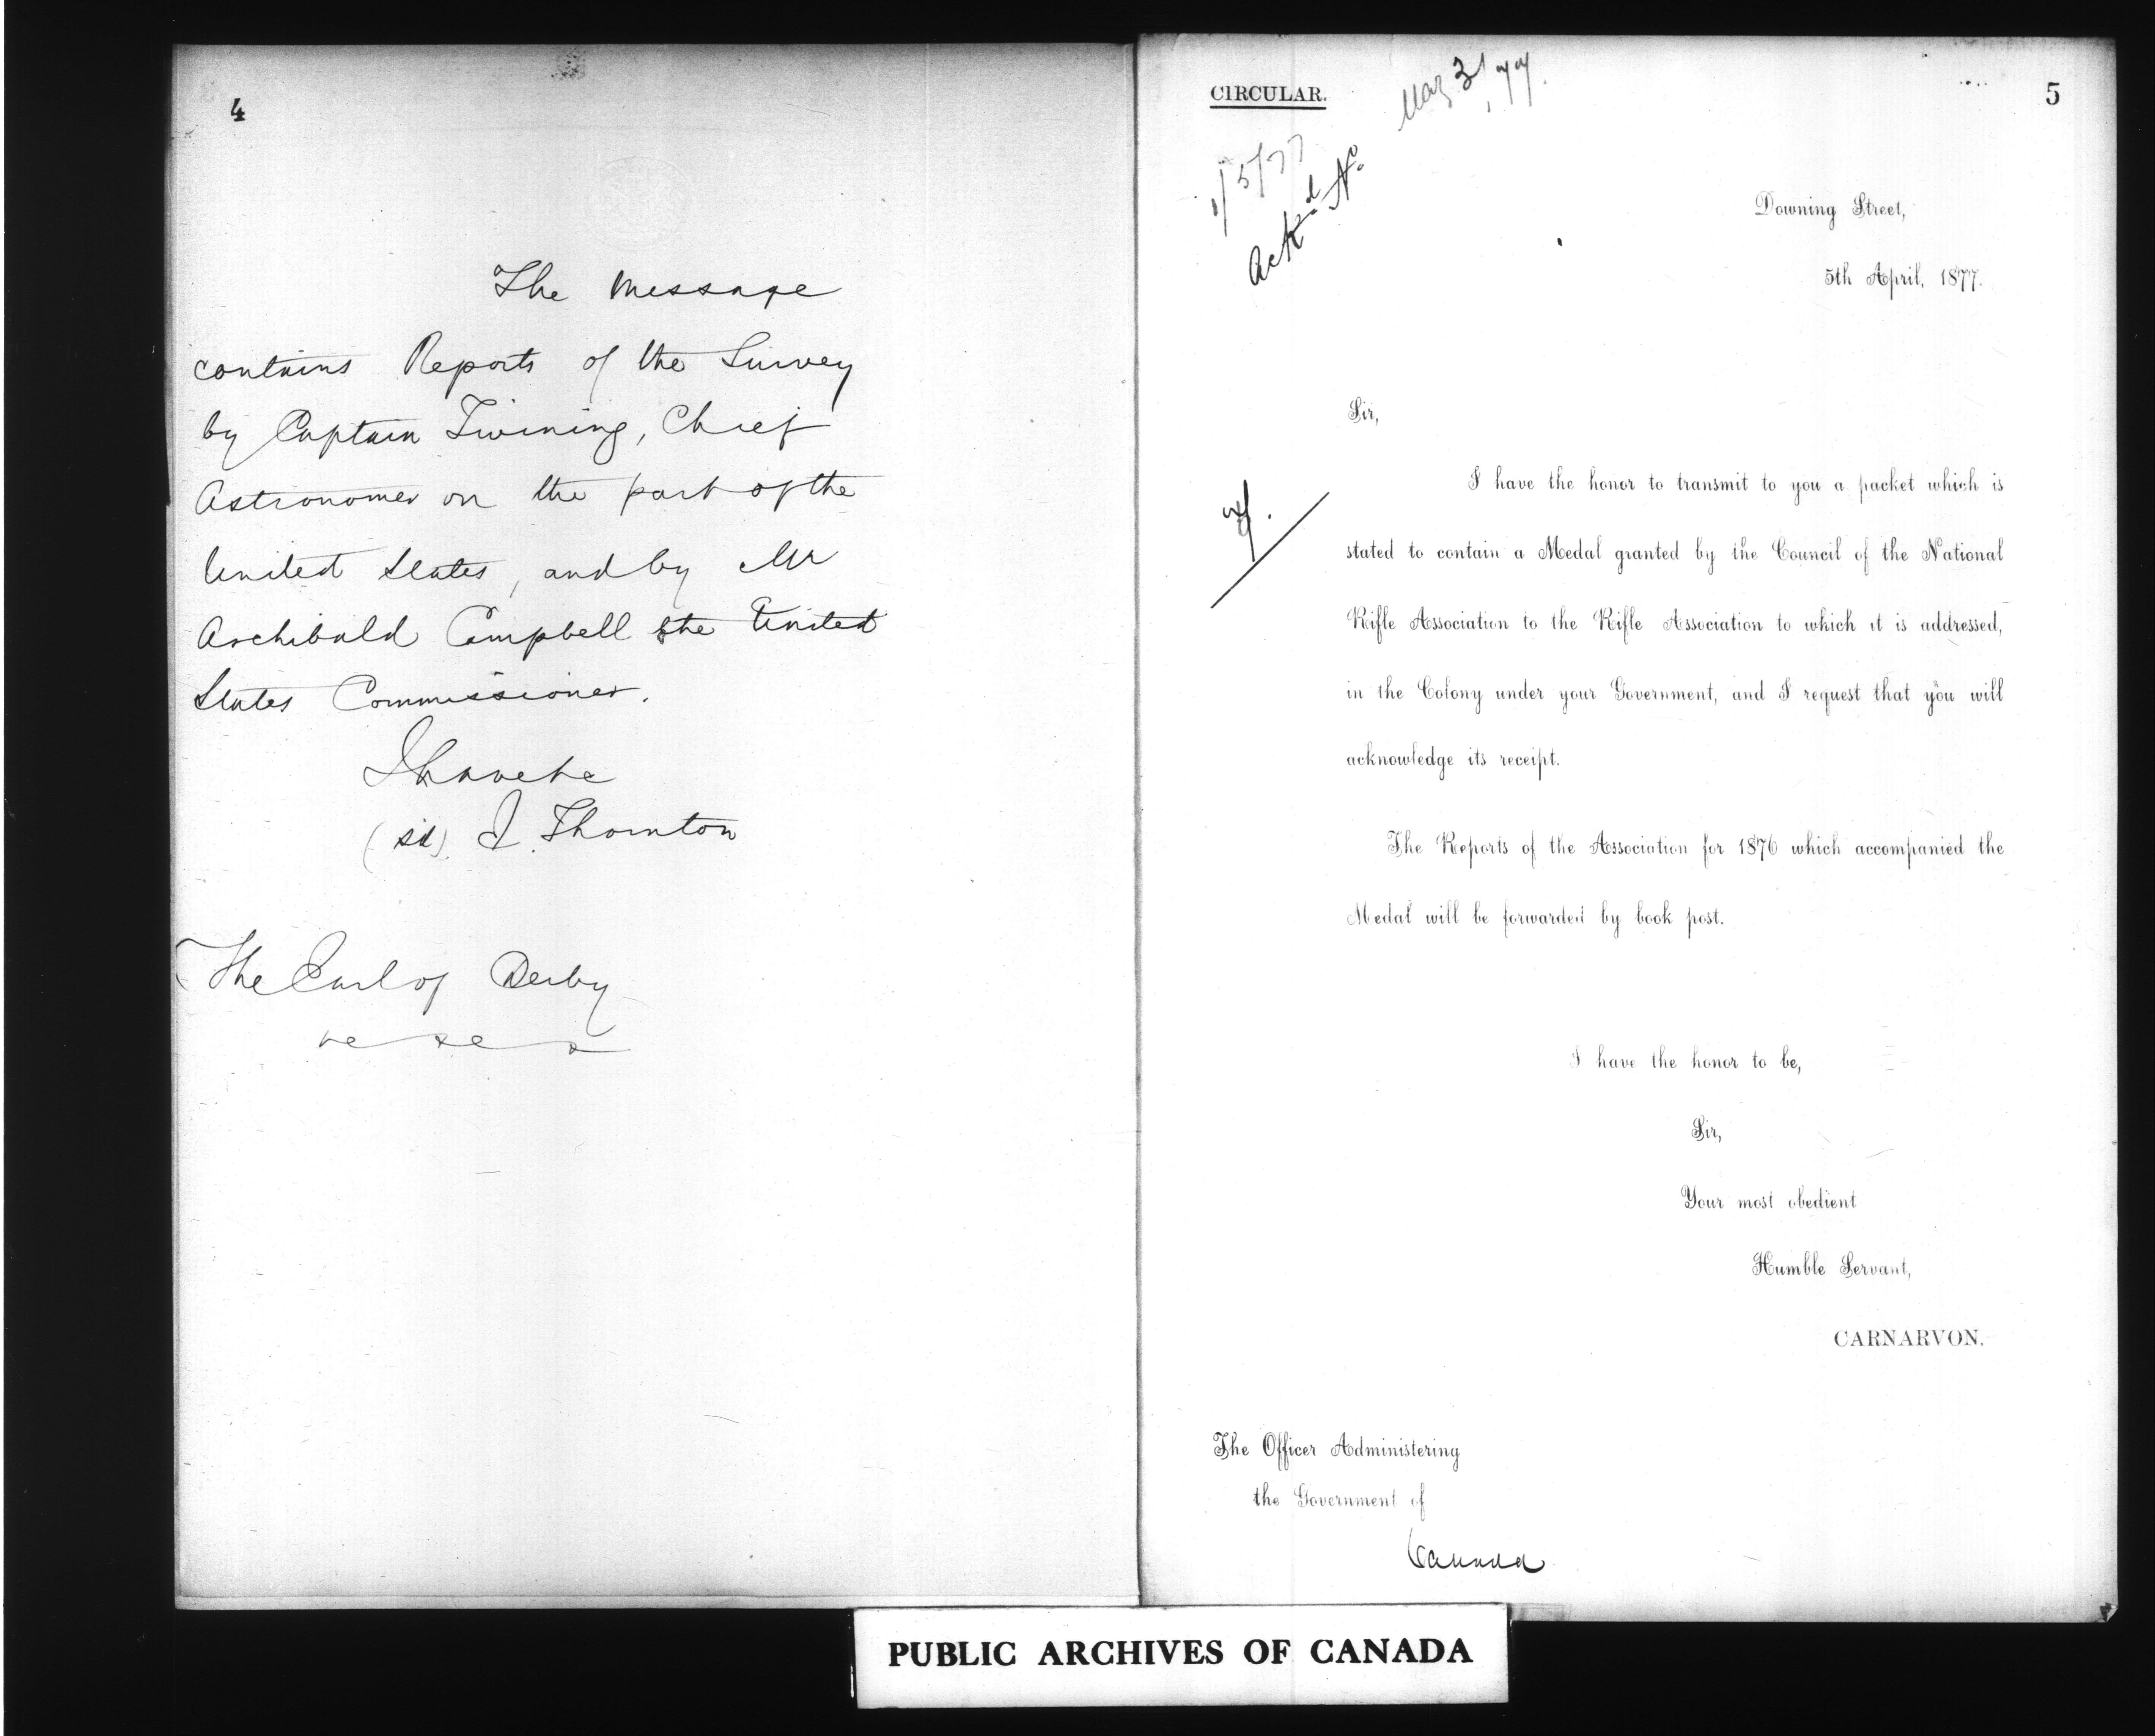 4
The Message
contains Reports of the Survey
by Captain Twining, Chief
Astronomer on the part of the
United States, and by Mr
Archibald Campbell the United
States Commissioner.
I have &c
(sd). E. Thornton
The Earl of Derby
&c &c &c
CIRCULAR.
May 3, 77.
5
1/5/77
Ackd No
Downing Street,
5th April, 1877.
Sir,
I have the honor to transmit to you a packet which is
stated to contain a Medal granted by the Council of the National
Rifle Association to the Rifle Association to which it is addressed,
in the Colony under your Government, and I request that you will
acknowledge its receipt.
The Reports of the Association for 1876 which accompanied the
Medal will be forwarded by book post.
I have the honor to be,
Sir,
Your most obedient
Humble Servant,
CARNARVON.
The Officer Administering
the Government of
Canada
PUBLIC ARCHIVES OF CANADA